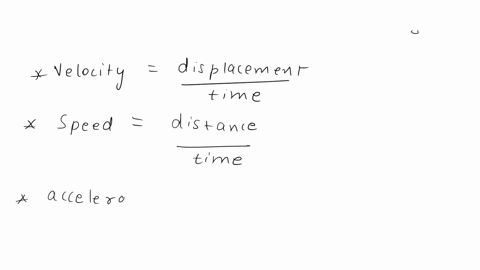 * Velocity = displacement
time
* Speed = distance
time
* accelero